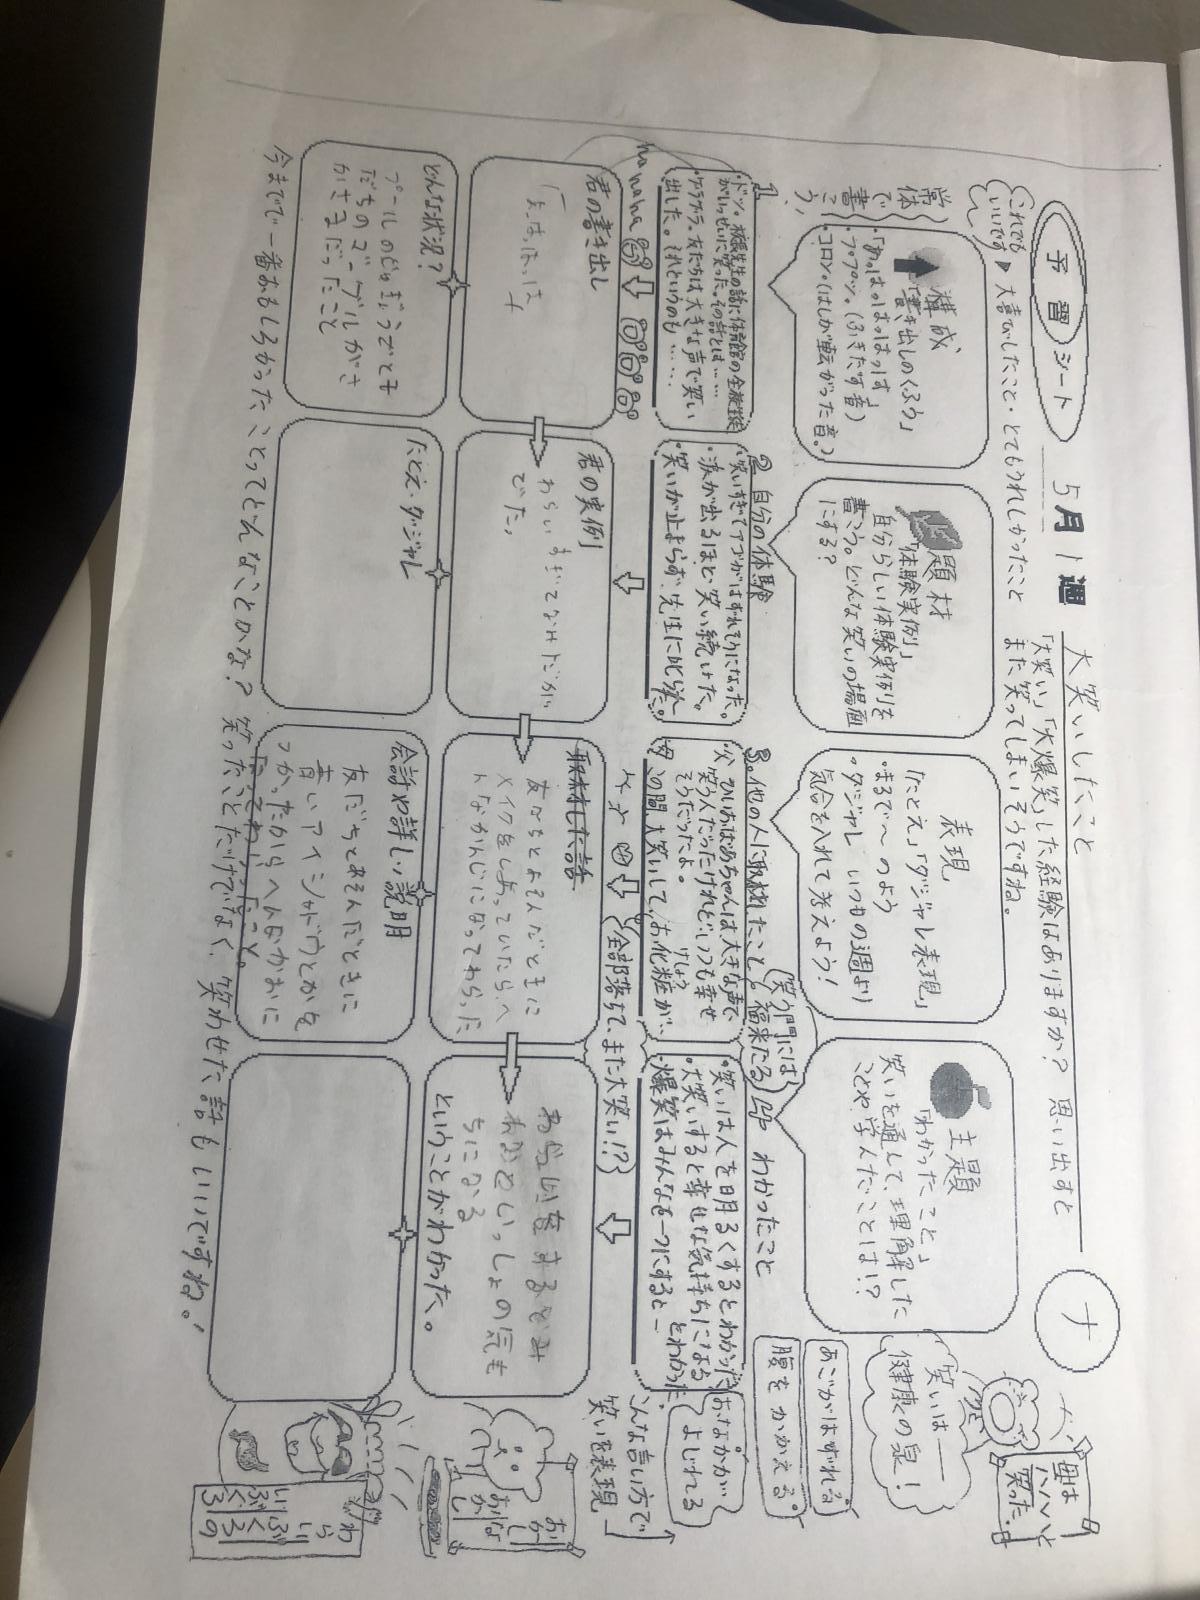 予習シート
5月1週
大笑いしたこと
ナ
「大笑い」「大爆笑」した経験はありますか？ 思い出すと
また笑ってしまいそうですね。
これでも
いいです
大喜びしたこと・とてもうれしかったこと
構成
「書き出しのくふう」
・「あっはっはっはっは」
・プププッ。(ふきだす音)
・コロン。(はしが転がった音。)
常体
で
書
こ
う
題材
「体験実例」
自分らしい体験実例を
書こう。どんな笑いの場面
にする？
表現
「たとえ」「ダジャレ表現」
・まるで〜のよう
・ダジャレ いつもの週より
気合を入れて考えよう！
主題
「わかったこと」
笑いを通して、理解した
ことや学んだことは!？
1.
・ドッ。校長先生の話に体育館の全校生徒
がいっせいに笑った。その話とは…
友だちは大きな声で笑い
出した。それというのも……
2 自分の体験
・笑いすぎてアゴがはずれそうになった。
・涙が出るほど笑い続けた。
・笑いが止まらず先生に叱られた。
3.他の人に取材したこと
笑う門には
福来たる
父 ひいおばあちゃんは大きな声で
笑う人だったけれどいつも幸せ
そうだったよ。
母 この間、大笑いして、お化粧が、
けしょう
全部落ちて、また大笑い!?
わかったこと
・笑いは人を明るくするとわかった
・大笑いすると幸せな気持ちになる
とわかった
・爆笑はみんなを一つにすると〜
ha ha ha
君の書き出し
君の実例
わらいすぎてなみだが
でた。
取材した話
友だちとあそんだときに
メイクをしあっていたらへ
んなかんじになってわらった
わらいをするとみ
んなといっしょの気も
ちになる
ということがわかった。
どんな状況？
プールのじゅぎょうでとも
だちのゴーグルがさ
かさまだったこと
たとえ・ダジャレ
会話や詳しい説明
友だちとあそんだときに
青いアイシャドウとかを
つかったからへんなかおに
なった。
今までで一番おもしろかったことってどんなことかな？ 笑ったことだけでなく、笑わせた話もいいですね。
母は
ハハハと
笑った。
笑いは——
健康の泉！
あごがはずれる
腹をかかえる
おなかが
よじれる
こんな言い方で
笑いを表現
わ
ら
い
ぶ
く
ろ